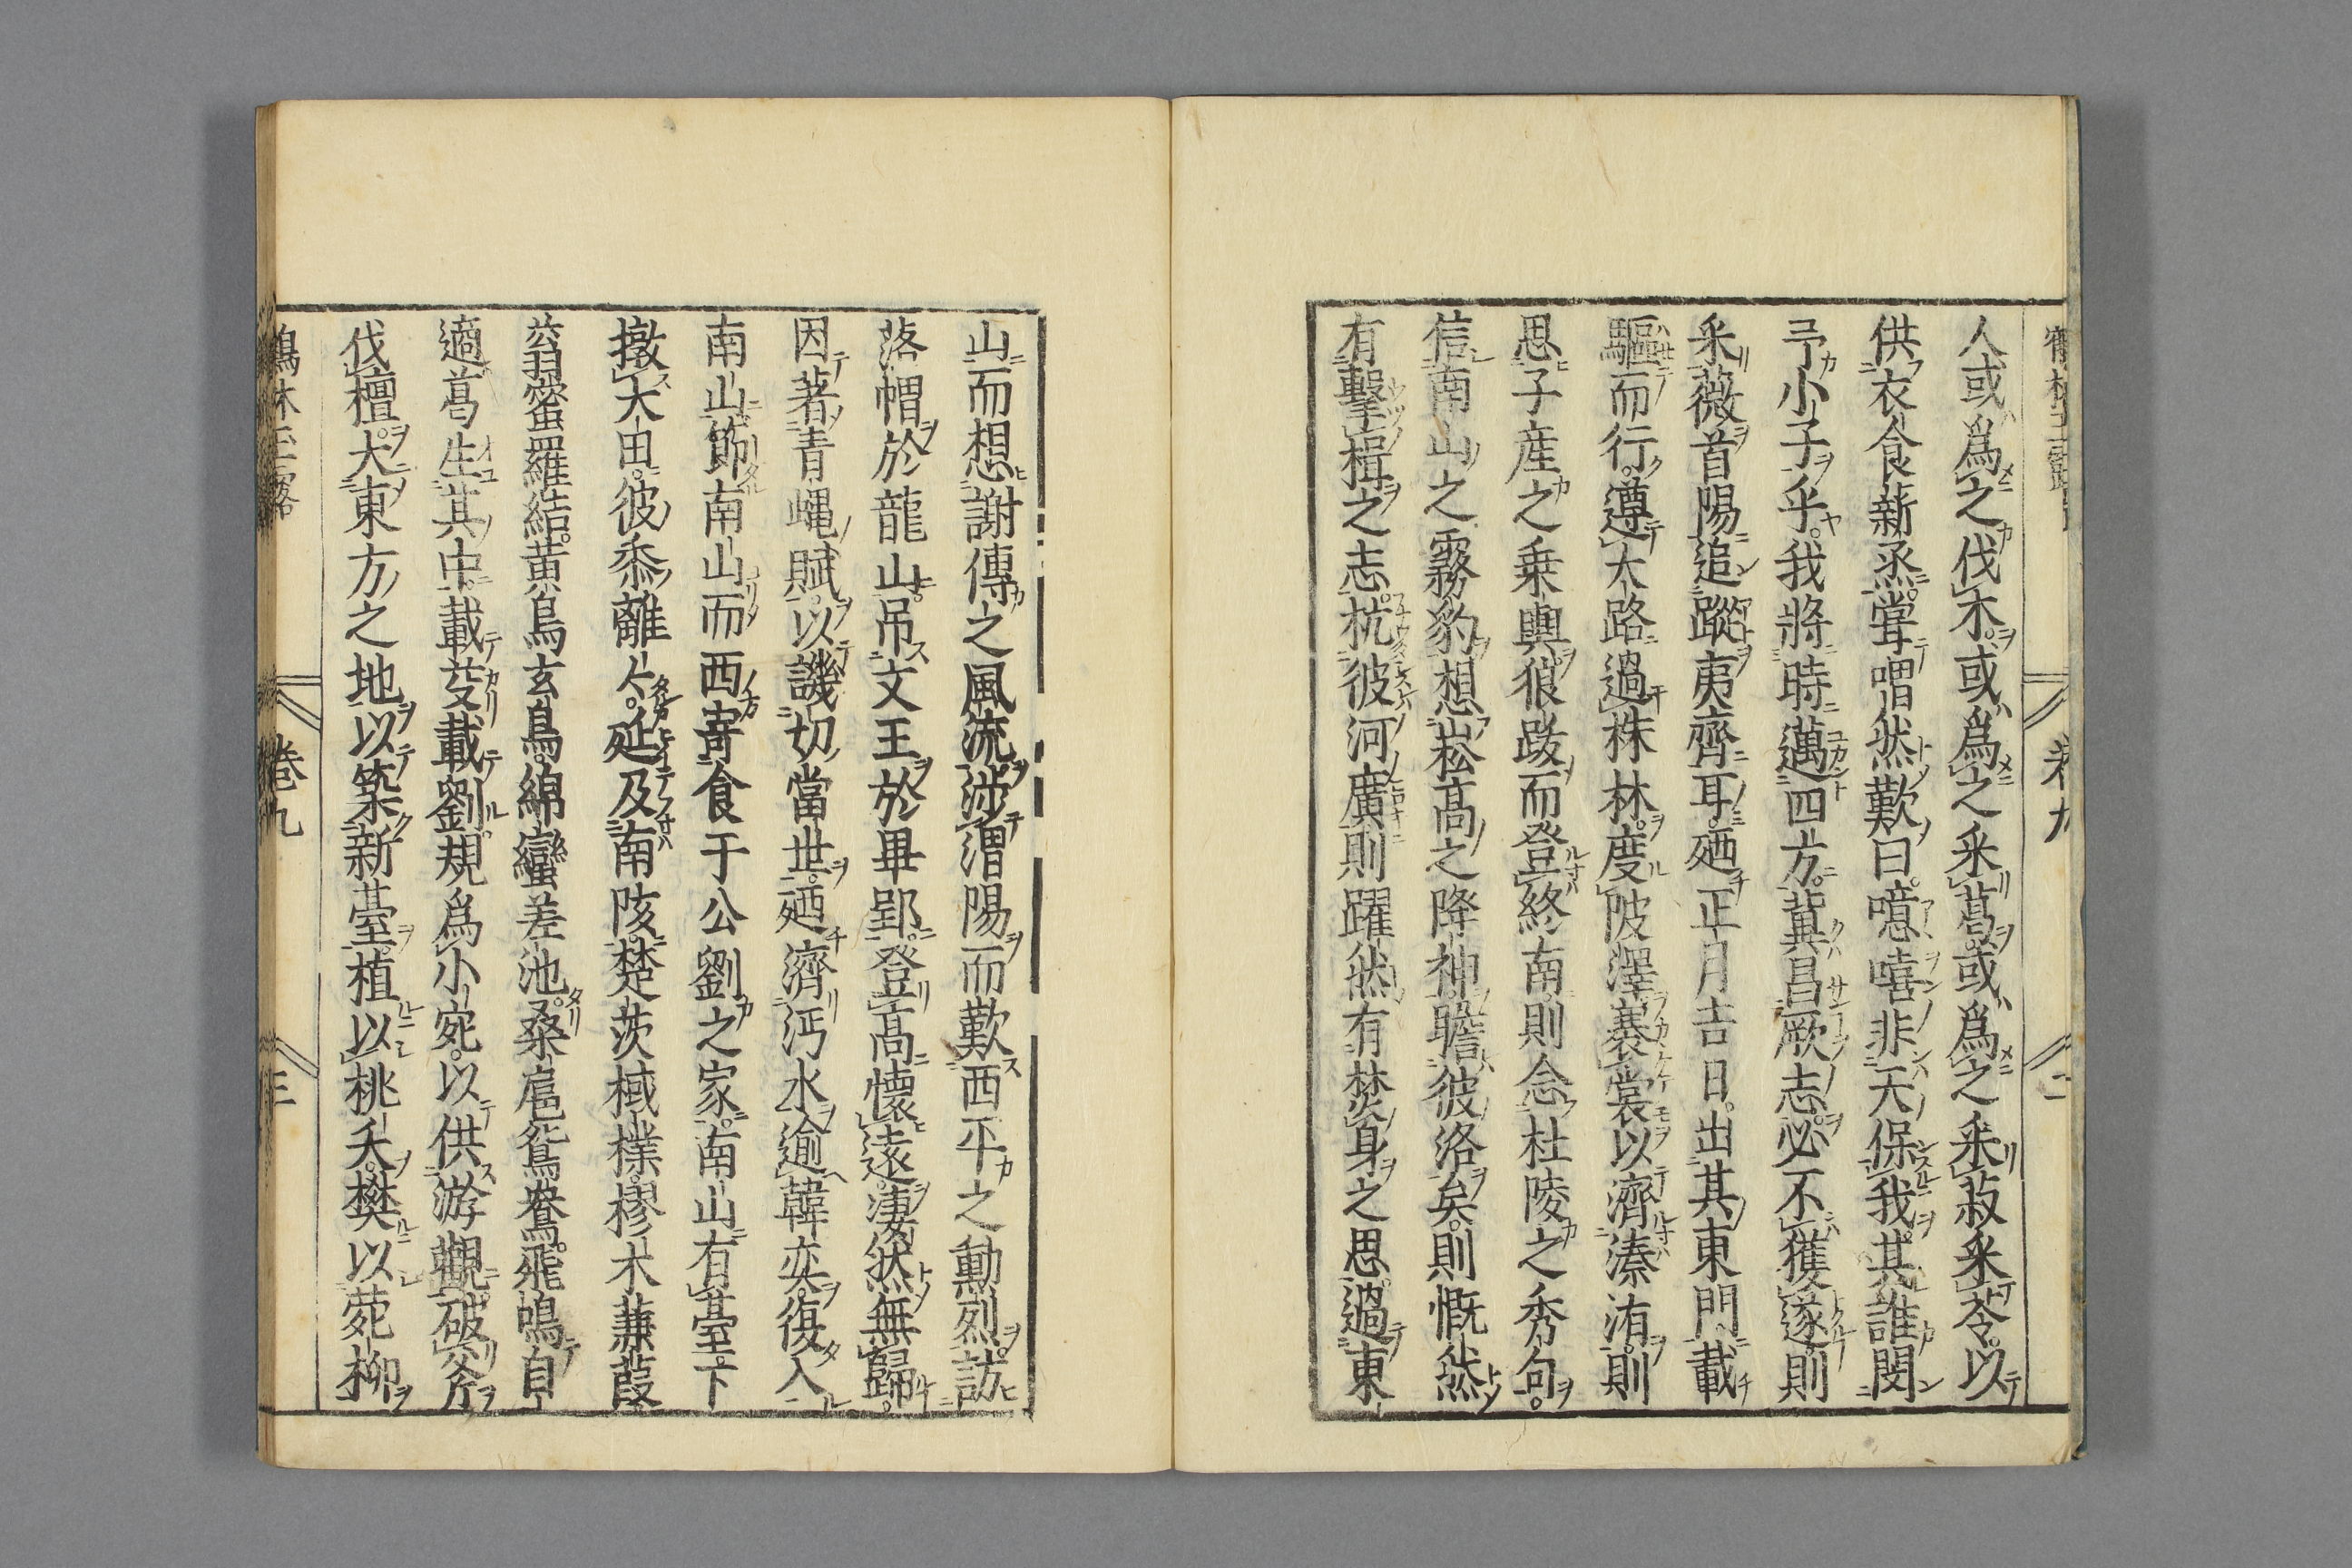 人或爲之伐木。或爲之采葛。或爲之采菽采苓。以
供衣食薪烝。嘗喟然歎曰。噫嘻非天保我。其誰閔
予小子乎。我將時邁四方。冀昌厥志。必不獲遂。則
采薇首陽。追蹤夷齊耳。廼正月吉日。出其東門。載
驅而行。遵大路。過株林。度陂澤。褰裳以濟溱洧。則
思子産之乗輿。狼跋而登終南。則念杜陵之秀句。
信南山之霧豹。想崧高之降神。瞻彼洛矣。則慨然
有擊楫之志。杭彼河廣。則躍然有焚身之思。過東
山而想謝傳之風流。涉渭陽而歎西平之勳烈。訪
落帽於龍山。吊文王於畢郢。登高懷遠。凄然無歸。
因著青蠅賦。以譏切當世。廼濟沔水。逾韓奕。復入
南山。節南山而西。寄食于公劉之家。南山有臺下
撴大田。彼黍離々。延及南陔。楚茨棫樸。樛木蒹葭
螽蟴羅結。黄鳥玄鳥。綿蠻差池。桑扈鴛鴦。飛鳴自
適。葛生其中。載芟載劉。規爲小宛。以供游觀。破斧
伐檀。大東方之地。以築新臺。植以桃夭。樊以菀柳
鶴林玉露
卷九
三